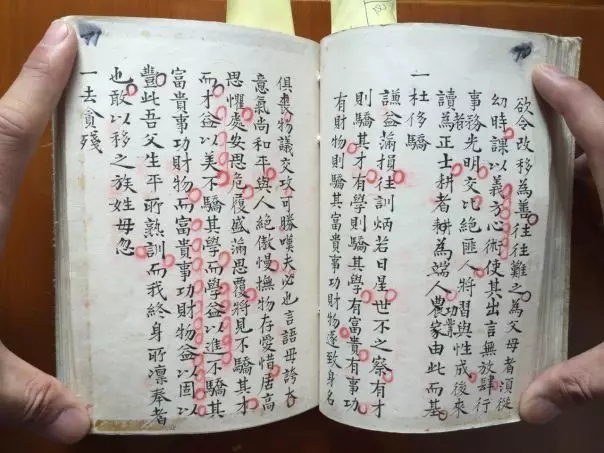 欲令改移為善往往難之為父母者須從
幼時課以義方心術使其出言無放肆行
事務光明交比絕匪人將習與性成後來
讀者為正士耕者耕為端人農家功業由此而基
一杜侈驕
謙益滿損往訓炳若日星世不之察有才
則驕其才有學則驕其學有富貴有事功
有財物則驕其富貴事功財物遂致身名
俱喪物議交攻可勝嘆夫必也言語毋誇大
意氣尚和平與人絕傲慢撫物存愛惜居高
思懼處安思危履盛滿思覆將見不驕其才
而才益以美不驕其學而學益以進不驕其
富貴事功財物而富貴事功財物益以固以
豐此吾父生平所熟訓而我終身所凜奉者
也敢以移之族姓毋忽
一去貪殘